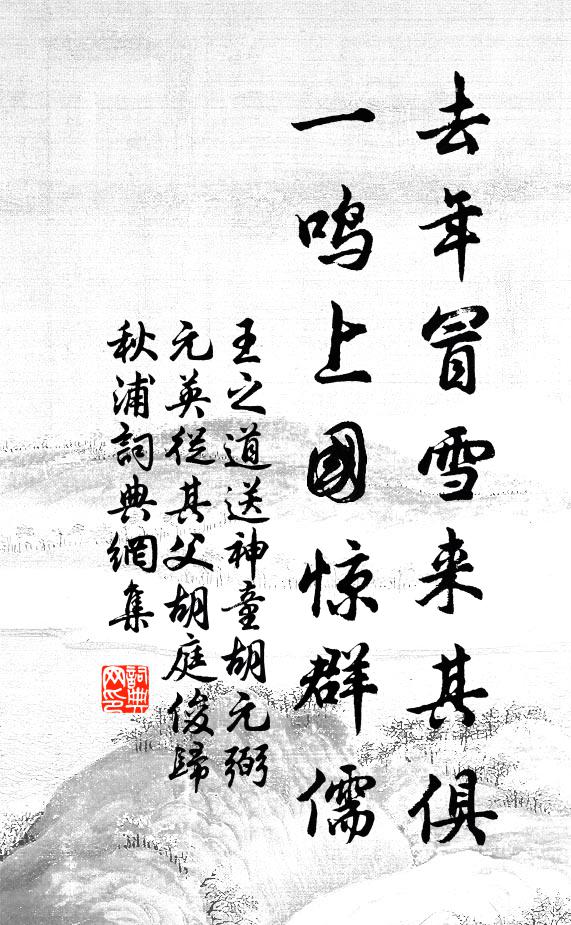 去年冒雪来其俱
一鸣上國惊群儒
王之道送神童胡元弼
元英從其父胡庭俊歸
秋浦詞典網集
詞典网印